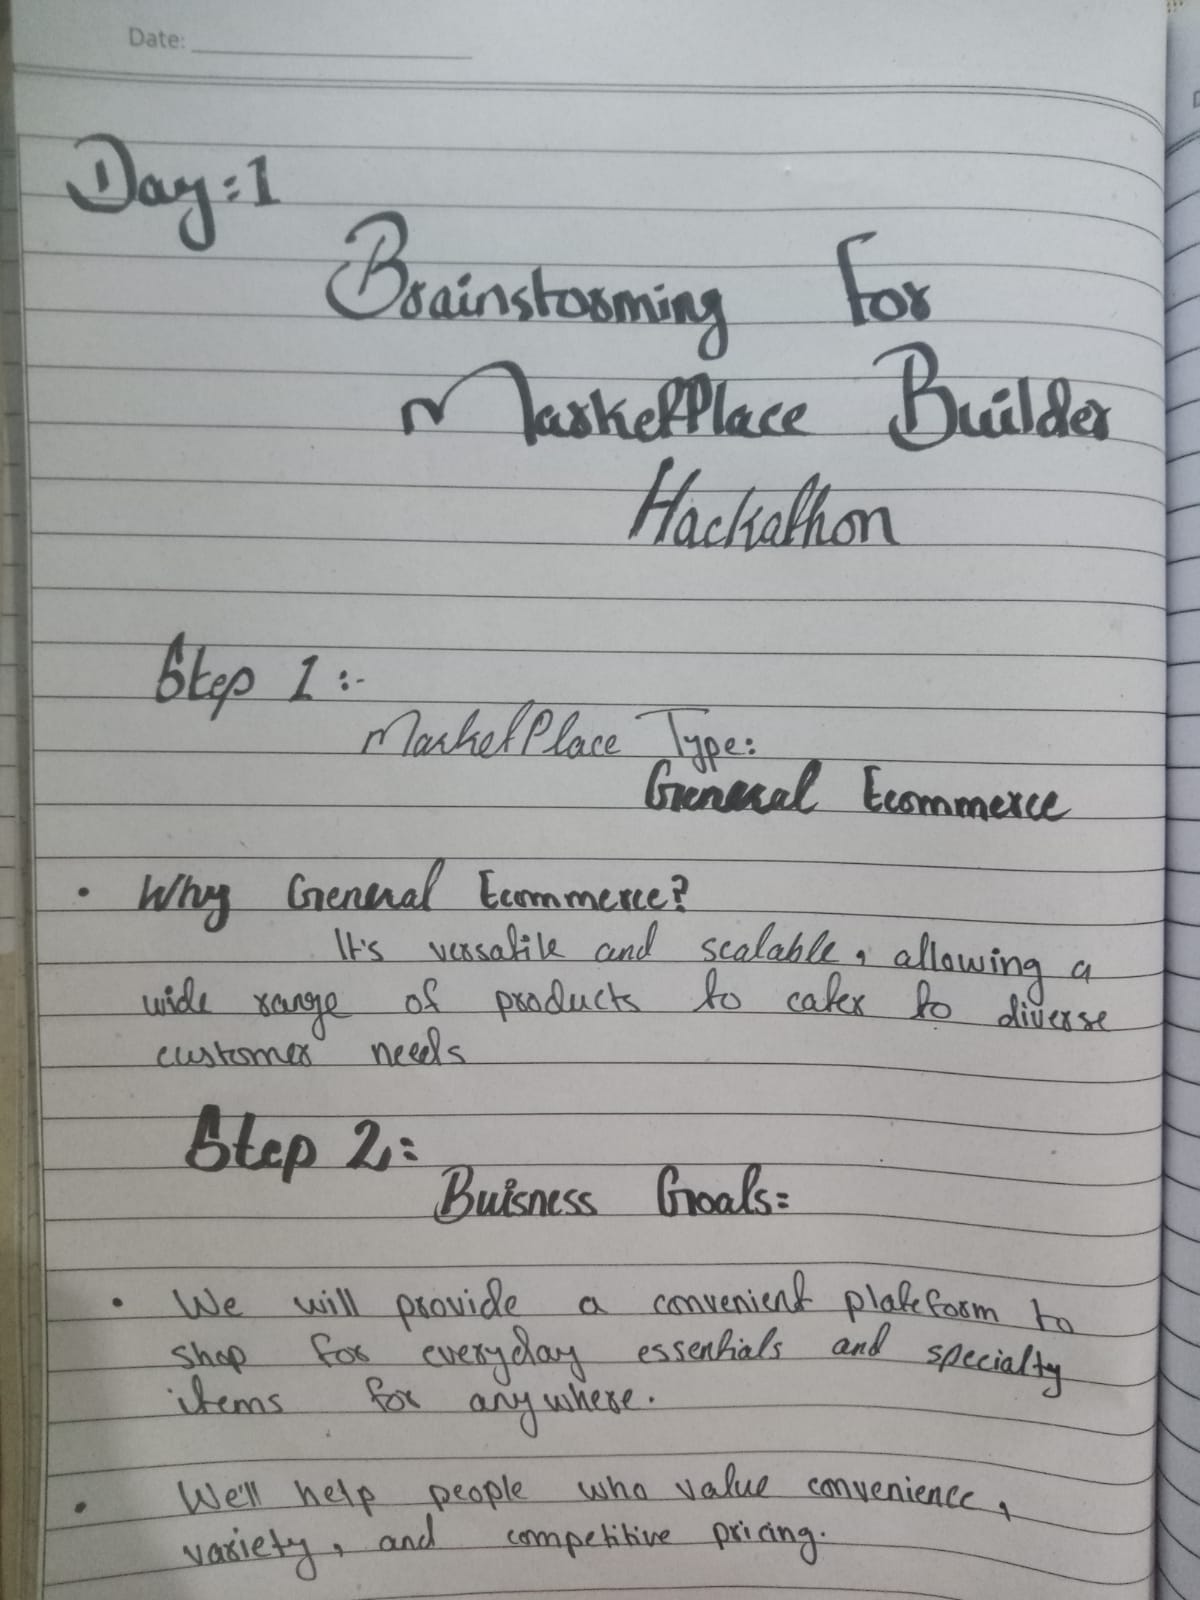 Date:
Day:1
Brainstorming For
MarketPlace Builder
Hackathon
Step 1:-
MarketPlace Type:
General Ecommerce
• Why General Ecommerce?
It's versatile and scalable, allowing a
wide range of products to cater to diverse
customer needs
Step 2:
Buisness Goals:
• We will provide a convenient plateform to
shop for everyday essentials and specialty
items for anywhere.
• We'll help people who value convenience,
variety, and competitive pricing.